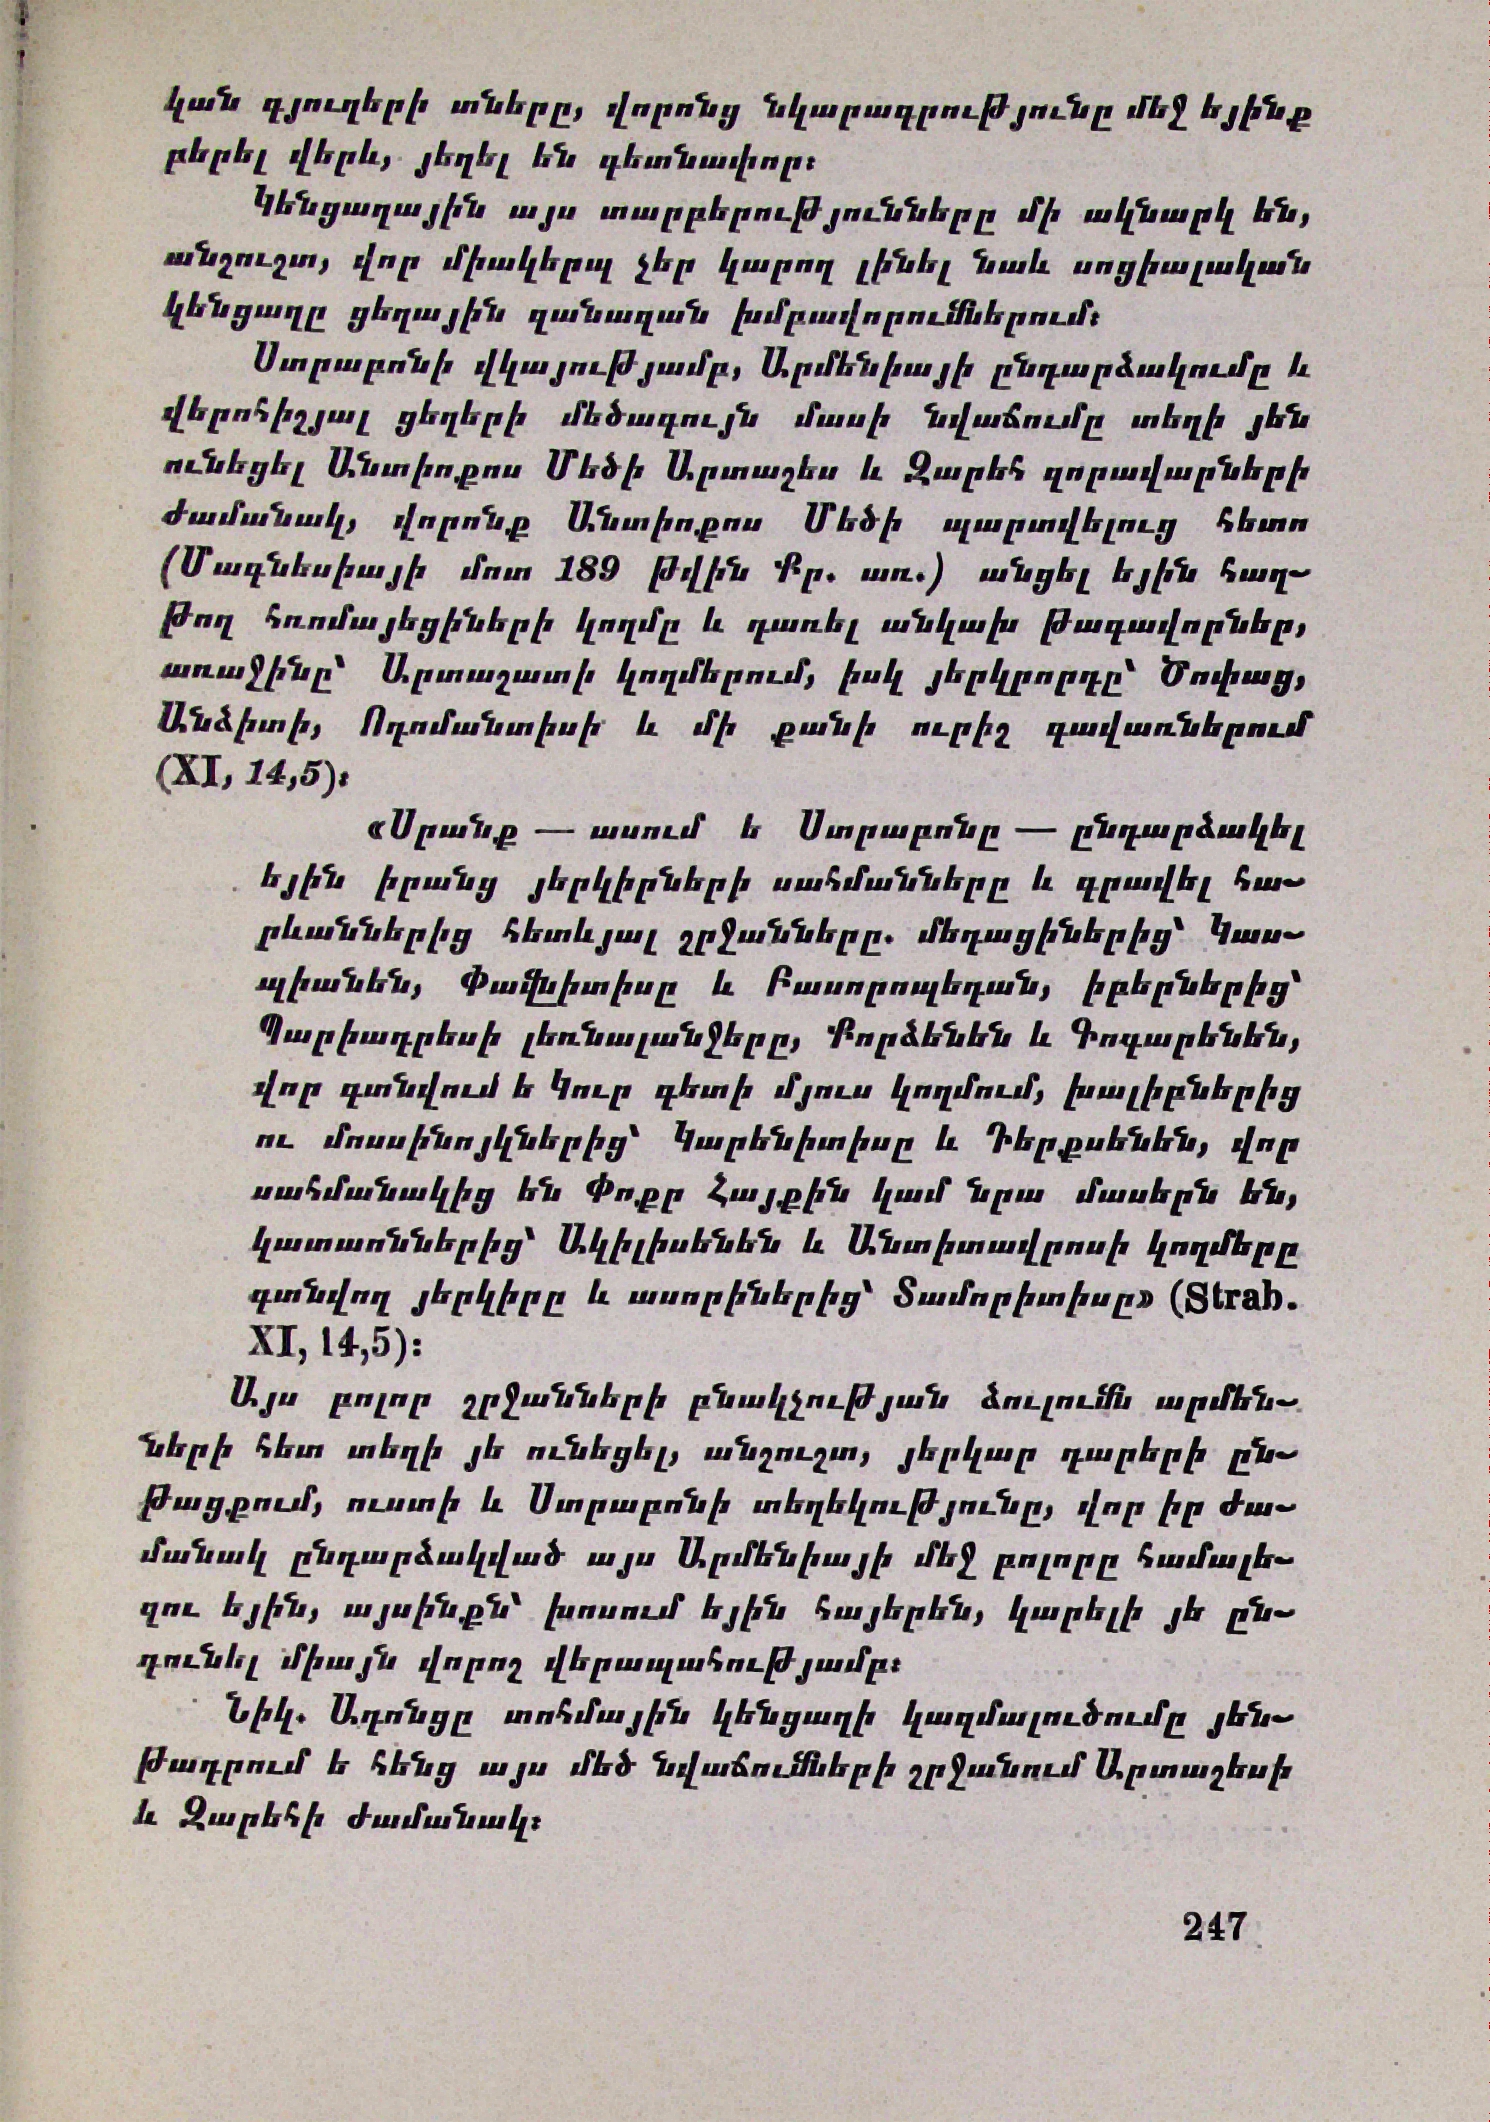 կան գյուղերի տները, վորոնց նկարագրությունը մեջ եյինք
բերել վերև, յեղել են գետնափոր։
Կենցաղային այս տարբերությունները մի ակնարկ են,
անշուշտ, վոր միակերպ չեր կարող լինել նաև սոցիալական
կենցաղը ցեղային զանազան խմբավորումներում։
Ստրաբոնի վկայությամբ, Արմենիայի ընդարձակումը և
վերոհիշյալ ցեղերի մեծագույն մասի նվաճումը տեղի յեն
ունեցել Անտիոքոս Մեծի Արտաշես և Զարեհ զորավարների
ժամանակ, վորոնք Անտիոքոս Մեծի պարտվելուց հետո
(Մագնեսիայի մոտ 189 թվին Քր. առ.) անցել եյին հաղ-
թող հռոմայեցիների կողմը և դառել անկախ թագավորներ,
առաջինը՝ Արտաշատի կողմերում, իսկ յերկրորդը՝ Ծոփաց,
Անձիտի, Ոդոմանտիսի և մի քանի ուրիշ գավառներում
(XI, 14,5)։
«Սրանք — ասում ե Ստրաբոնը — ընդարձակել
եյին իրանց յերկիրների սահմանները և գրավել հա-
րևաններից հետևյալ շրջանները. մեդացիներից՝ Կաս-
պիանեն, Փավնիտիսը և Բասորոպեդան, իբերներից՝
Պարիադրեսի լեռնալանջերը, Քորձենեն և Գոգարենեն,
վոր գտնվում ե Կուր գետի մյուս կողմում, խալիբներից
ու մոսսինոյկներից՝ Կարենիտիսը և Դերքսենեն, վոր
սահմանակից են Փոքր Հայքին կամ նրա մասերն են,
կատաոններից՝ Ակիլիսենեն և Անտիտավրոսի կողմերը
գտնվող յերկիրը և ասորիներից՝ Տամորիտիսը» (Strab.
XI, 14,5)։
Այս բոլոր շրջանների բնակչության ձուլումն արմեն-
ների հետ տեղի յե ունեցել, անշուշտ, յերկար դարերի ըն-
թացքում, ուստի և Ստրաբոնի տեղեկությունը, վոր իր ժա-
մանակ ընդարձակված այս Արմենիայի մեջ բոլորը համալե-
զու եյին, այսինքն՝ խոսում եյին հայերեն, կարելի յե ըն-
դունել միայն վորոշ վերապահությամբ։
Նիկ. Ադոնցը տոհմային կենցաղի կազմալուծումը յեն-
թադրում ե հենց այս մեծ նվաճումների շրջանում Արտաշեսի
և Զարեհի ժամանակ։
247